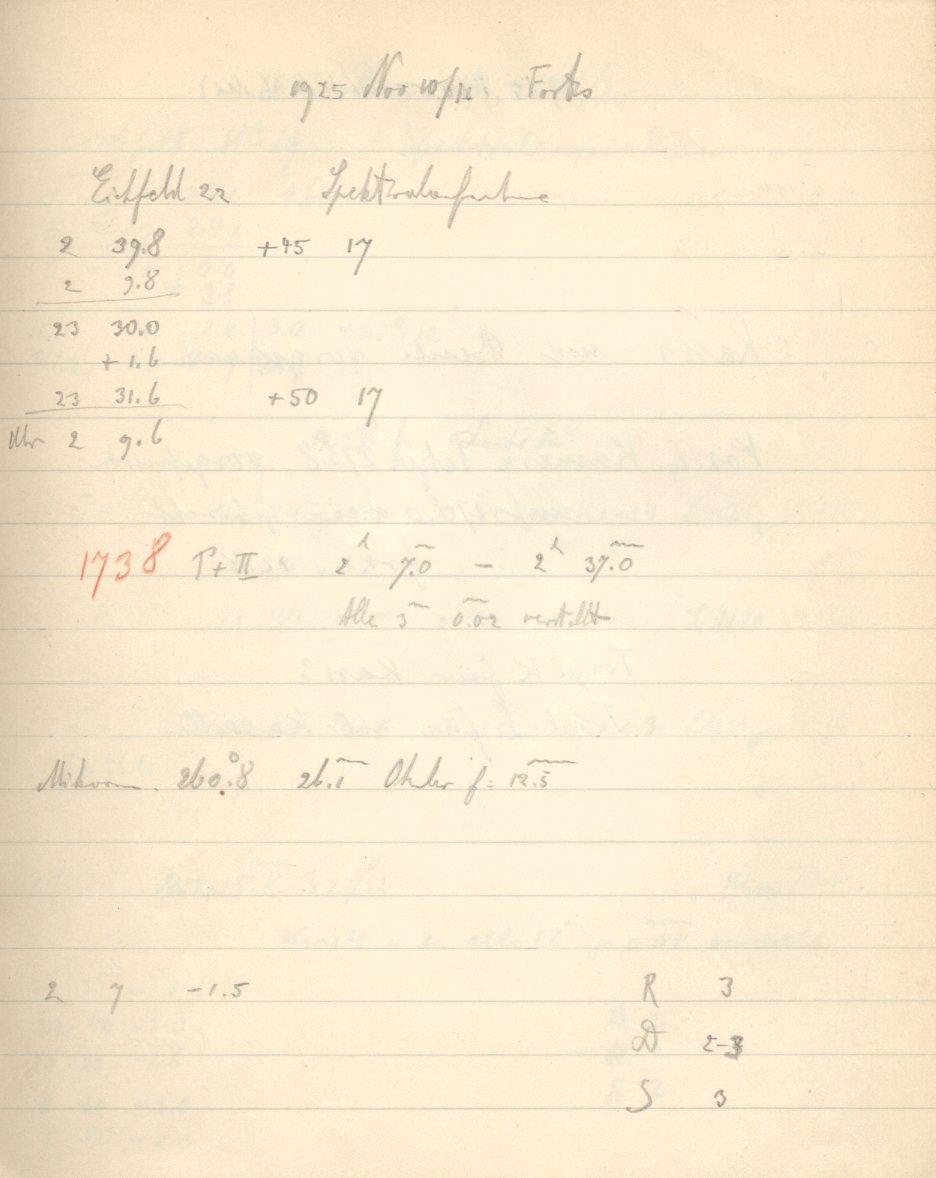 1925 Nov 10/11 Forts
Eichfeld 22 Spektralaufnahme
2 39.8 +45 17
2 9.8
23 30.0
+1.6
23 31.6 +50 17
Uhr 2 9.6
1738 P+II 2h 7m.0 — 2h 37m.0
Alle 5m 0.02 mm verstellt
Mikrom. 260°.8 26.1 mm Okular f = 12.5 mm
2 7 -1.5 R 3
D 2-3
S 3